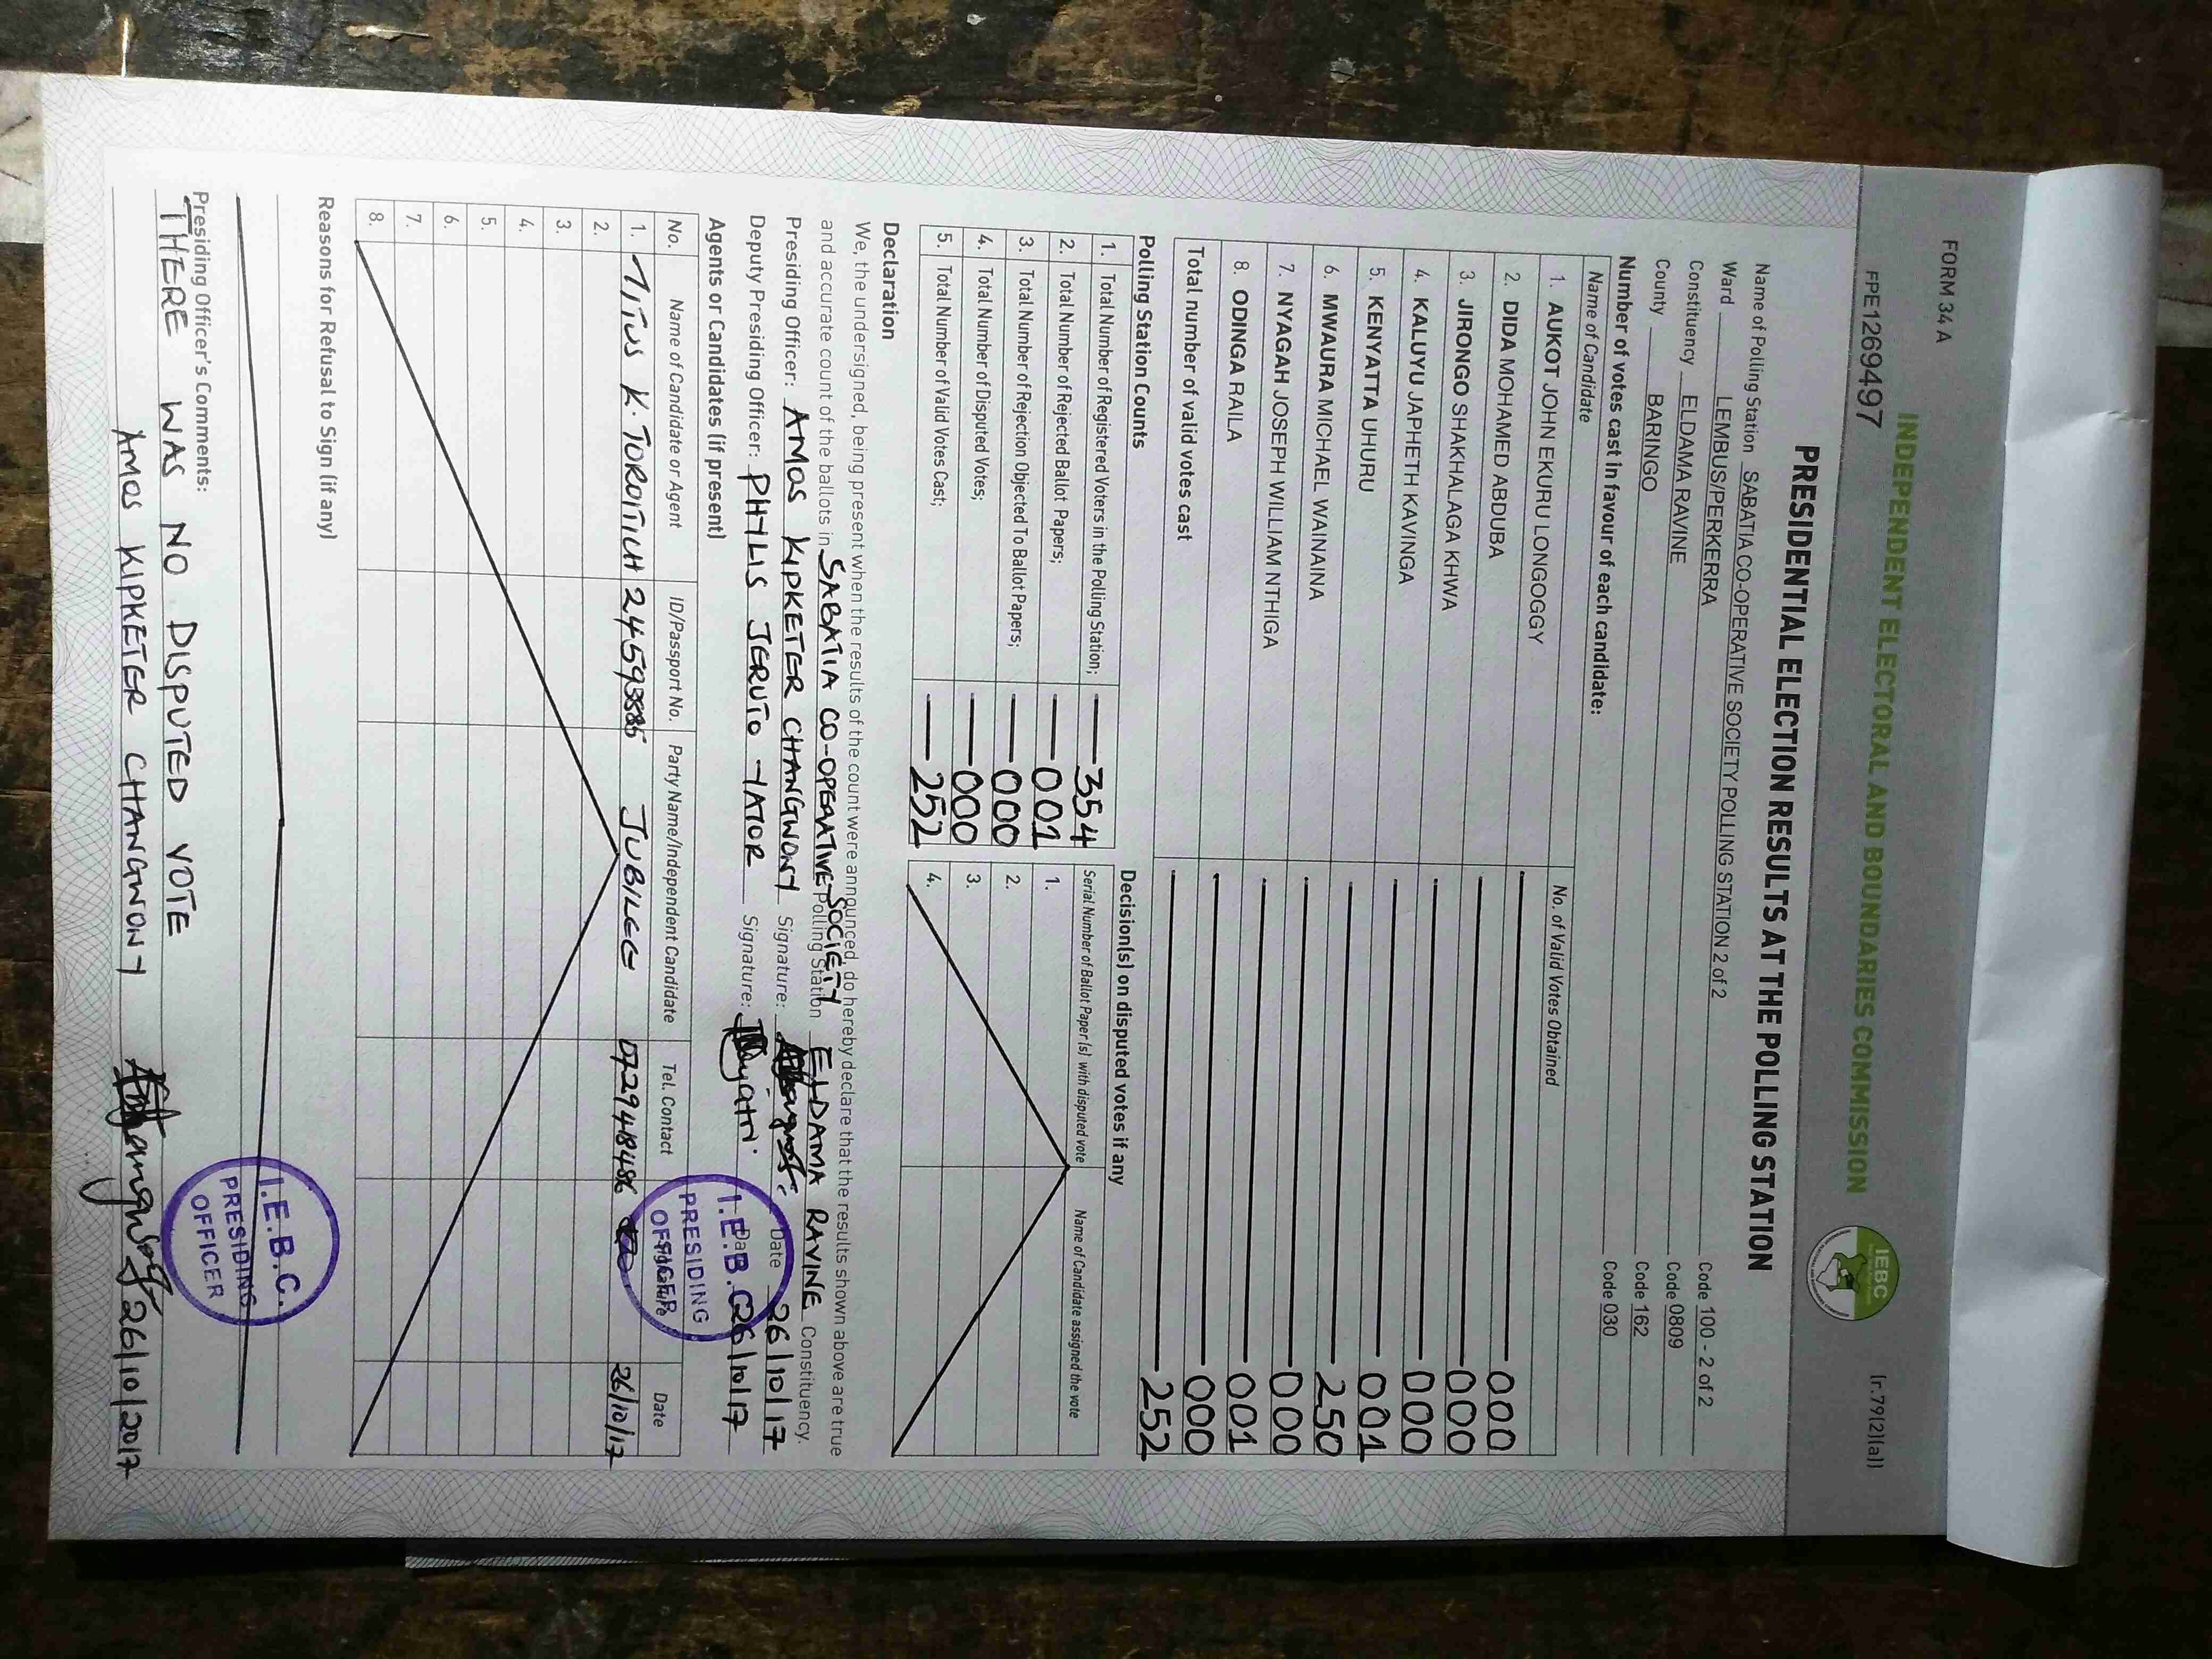 FORM 34A
(r.79(2)(a))
INDEPENDENT ELECTORAL AND BOUNDARIES COMMISSION
IEBC
FPE1269497
PRESIDENTIAL ELECTION RESULTS AT THE POLLING STATION
Name of Polling Station SABATIA CO-OPERATIVE SOCIETY POLLING STATION 2 of 2 Code 100 - 2 of 2
Ward LEMBUS/PERKERRA Code 0809
Constituency ELDAMA RAVINE Code 162
County BARINGO Code 030
Number of votes cast in favour of each candidate:
Name of Candidate No. of Valid Votes Obtained
1. AUKOT JOHN EKURU LONGOGGY 000
2. DIDA MOHAMED ABDUBA 000
3. JIRONGO SHAKHALAGA KHWA 000
4. KALUYU JAPHETH KAVINGA 001
5. KENYATTA UHURU 250
6. MWAURA MICHAEL WAINAINA 000
7. NYAGAH JOSEPH WILLIAM NTHIGA 001
8. ODINGA RAILA 000
Total number of valid votes cast 252
Polling Station Counts
1. Total Number of Registered Voters in the Polling Station; 354
2. Total Number of Rejected Ballot Papers; 001
3. Total Number of Rejection Objected To Ballot Papers; 000
4. Total Number of Disputed Votes; 000
5. Total Number of Valid Votes Cast; 252
Decision(s) on disputed votes if any
Serial Number of Ballot Paper(s) with disputed vote Name of Candidate assigned the vote
1.
2.
3.
4.
Declaration
We, the undersigned, being present when the results of the count were announced, do hereby declare that the results shown above are true
and accurate count of the ballots in SABATIA CO-OPERATIVE SOCIETY Polling Station ELDAMA RAVINE Constituency.
Presiding Officer: AMOS KIPKETER CHANGWONY Signature: Date 26/10/17
Deputy Presiding Officer: PHYLIS JERUTO YATOR Signature: Date 26/10/17
I.E.B.C.
PRESIDING
OFFICER
Agents or Candidates (if present)
No. Name of Candidate or Agent ID/Passport No. Party Name/Independent Candidate Tel. Contact Signature Date
1. TITUS K. TOROITICH JUBILEE 26/10/17
2.
3.
4.
5.
6.
7.
8.
Reasons for Refusal to Sign (if any)
Presiding Officer's Comments:
THERE WAS NO DISPUTED VOTE
AMOS KIPKETER CHANGWONY 26/10/2017
I.E.B.C.
PRESIDING
OFFICER